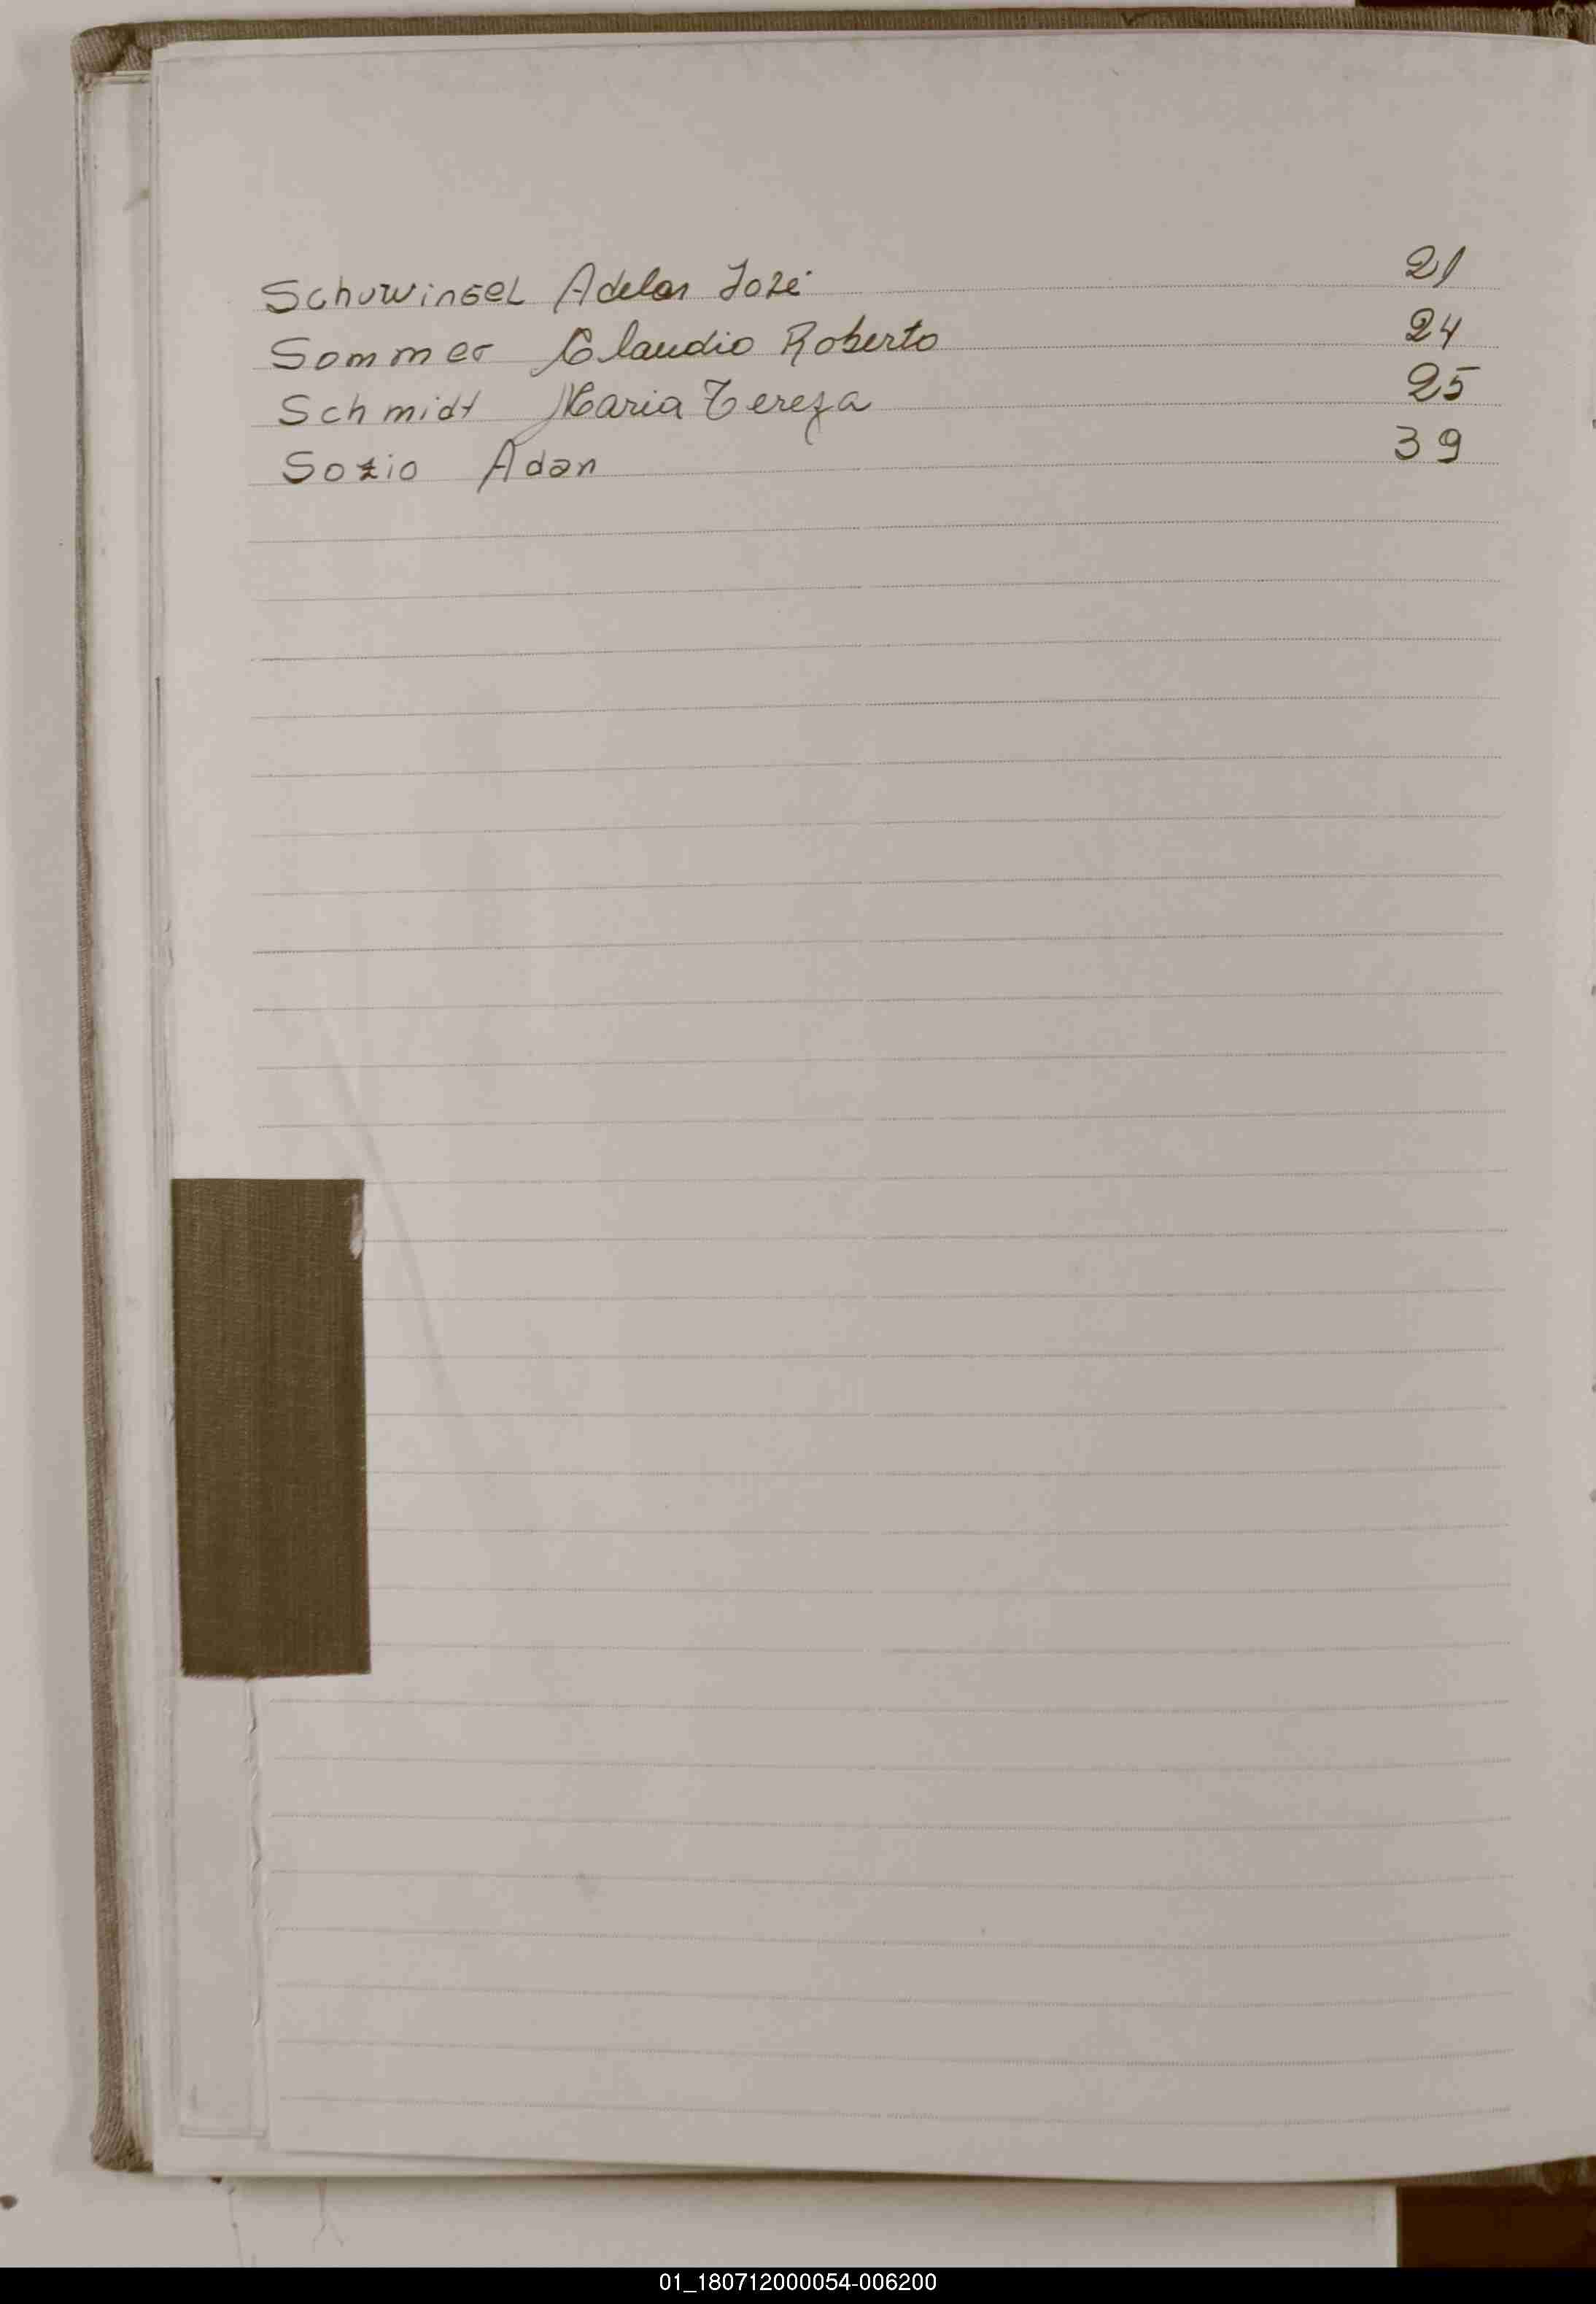 Schuwinsel Adelar José 21
Sommer Claudio Roberto 24
Schmidt Maria Tereza 25
Sozio Adan 39
01_180712000054-006200